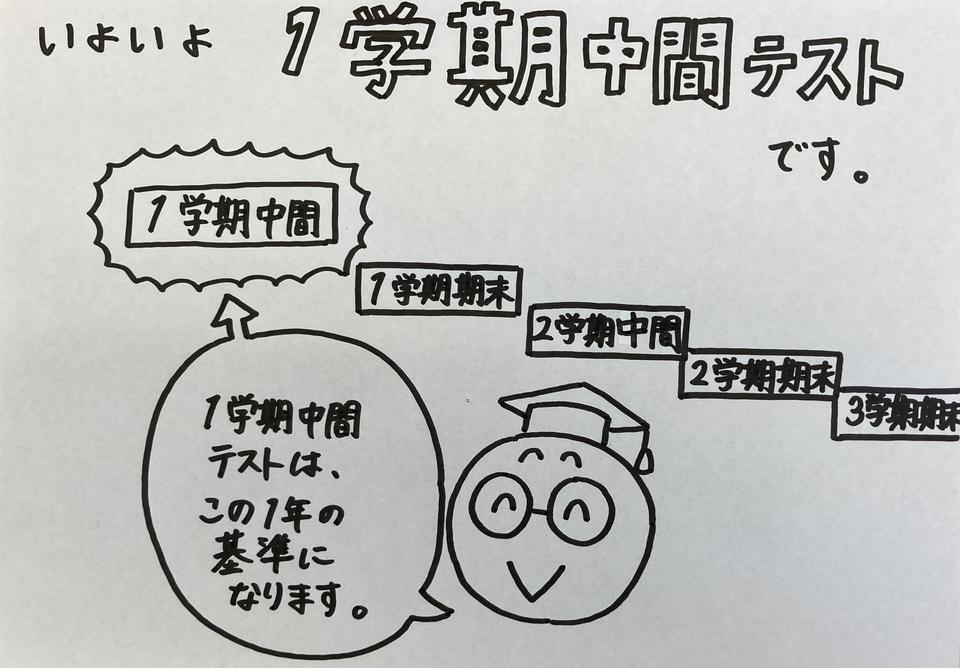 いよいよ 1学期中間テスト
です。
1学期中間
1学期期末
2学期中間
2学期期末
3学期期末
1学期中間
テストは、
この1年の
基準に
なります。